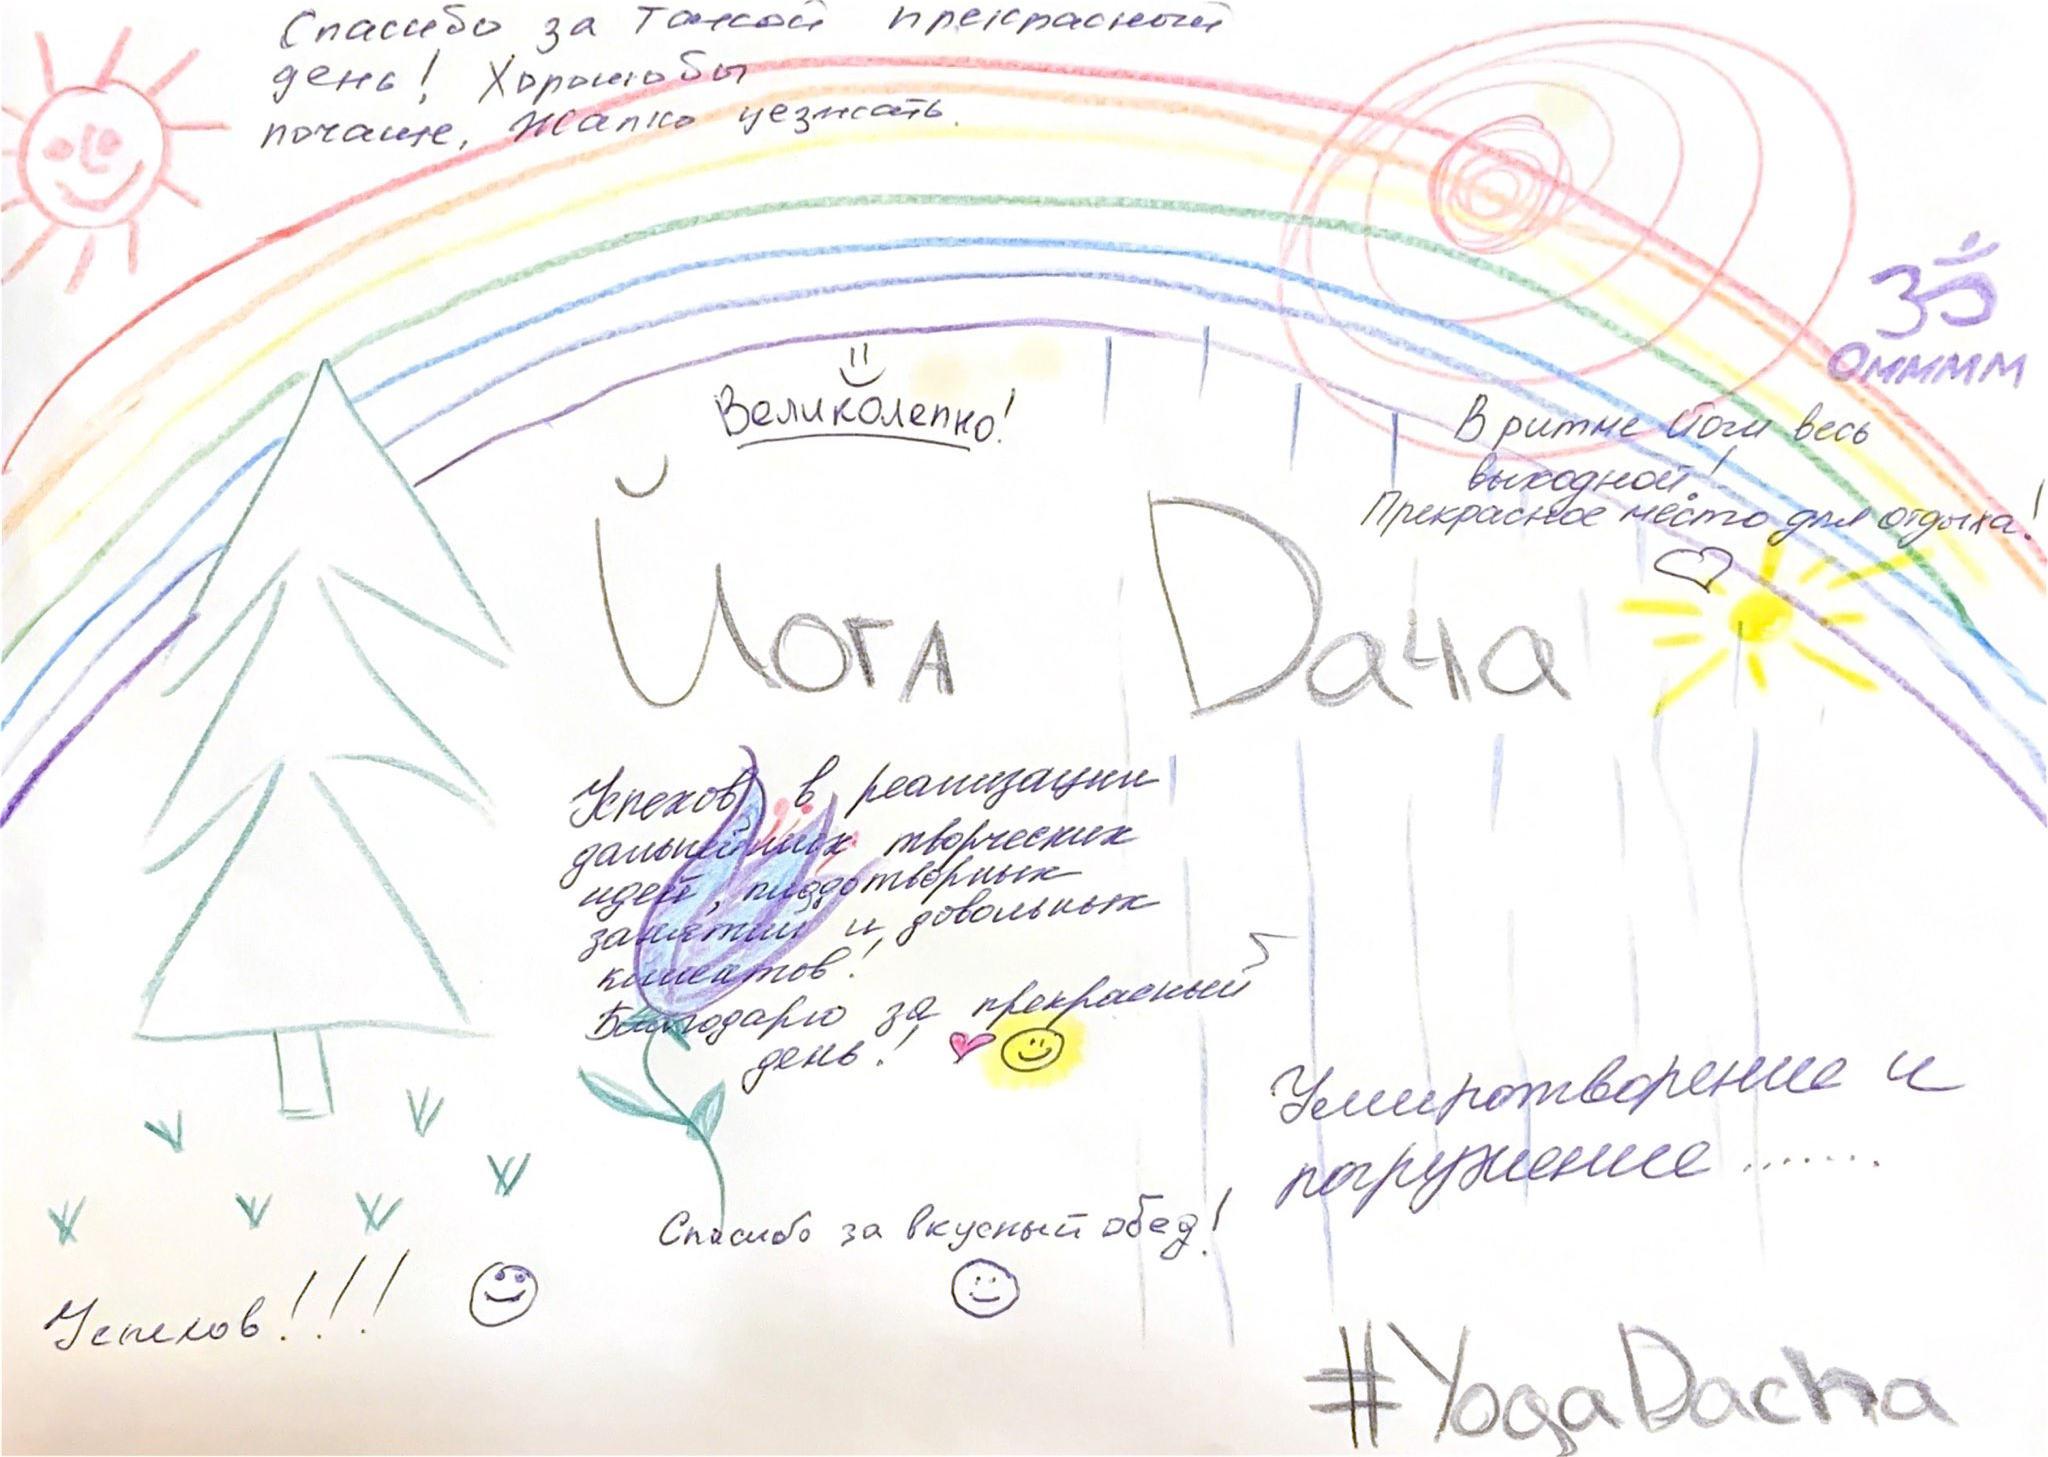 Спасибо за такой прекрасный
день! Хорошо бы
почаще, Жалко уезжать.
ॐ
Оммммм
Великолепно!
В ритме йоги весь
выходной!
Прекрасное место для отдыха!
Йога Dача
Успехов в реализации
дальнейших творческих
идей, плодотворных
занятий и довольных
клиентов!
Благодарю за прекрасный
день!
Умиротворение и
погружение.......
Спасибо за вкусный обед!
Успехов!!!
#YogaDacha